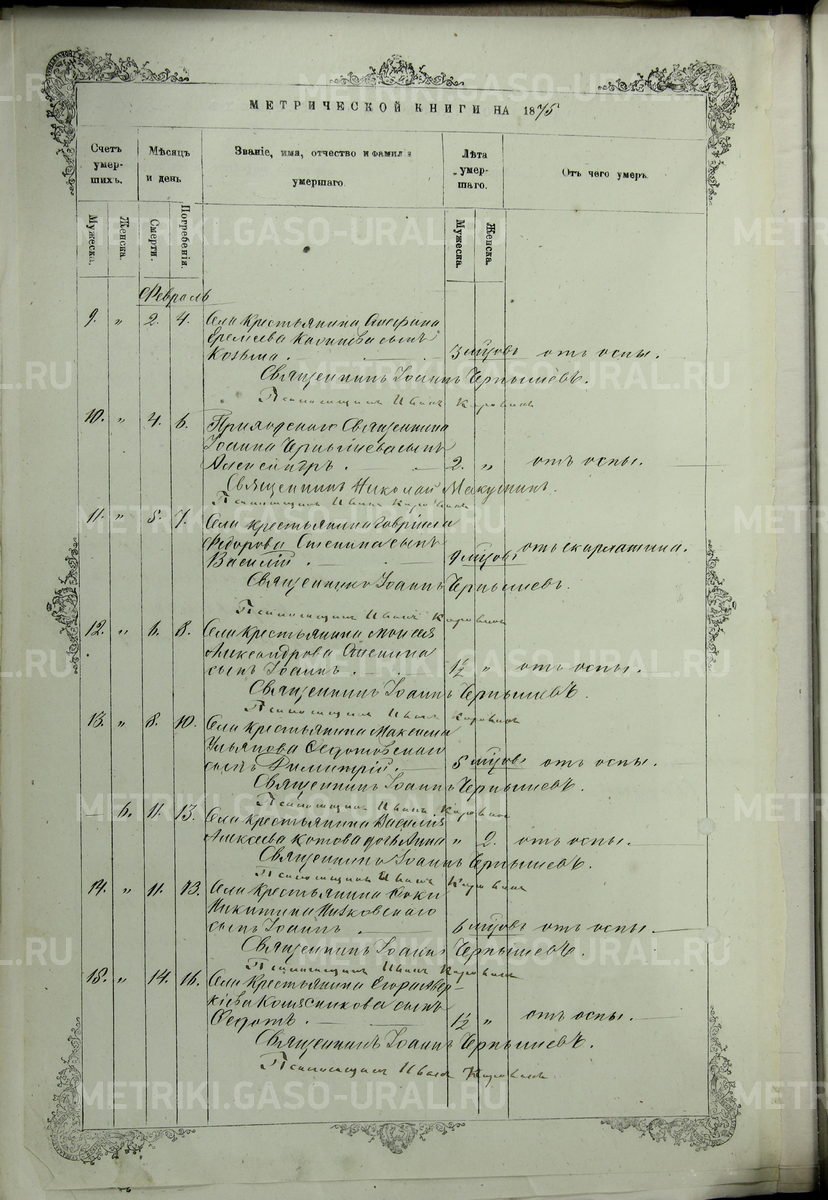 МЕТРИЧЕСКОЙ КНИГИ НА 1875
Счетъ умершихъ.
Мѣсяцъ и день
Званіе, имя, отчество и фамилія умершаго.
Лѣта умершаго.
Отъ чего умеръ.
Мужеска.
Женска.
Смерти.
Погребенія.
Мужеска.
Женска.
Февраль
9. " 2. 4. Села крестьянина
Еремѣева сынъ
Козьма. 3 мѣсцовъ отъ оспы.
Священникъ Іоаннъ Чернышевъ.
Псаломщикъ Иванъ
10. " 4. 6. Приходскаго Священника
Іоанна Чернышева сынъ
Александръ. 2. " отъ оспы.
Священникъ Николай
Псаломщикъ Иванъ
11. " 5. 7. Села крестьянина Гавріила
Федорова сынъ
Василій 9 мѣсцовъ отъ скарлатина.
Священникъ Іоаннъ Чернышевъ.
Псаломщикъ Иванъ
12. " 6. 8. Села крестьянина Моисея
Александрова
сынъ Іоаннъ. 1½ " отъ оспы.
Священникъ Іоаннъ Чернышевъ.
Псаломщикъ Иванъ
13. " 8. 10. Села крестьянина Максима
Ульянова Федотовскаго
сынъ Димитрій. 5 мѣсцовъ отъ оспы.
Священникъ Іоаннъ Чернышевъ.
Псаломщикъ Иванъ
— 6. 11. 13. Села крестьянина Василія
Алексѣева Котова дочь Анна " 2. отъ оспы.
Священникъ Іоаннъ Чернышевъ.
Псаломщикъ Иванъ
14. " 11. 13. Села крестьянина Фоки
Никитина
сынъ Іоаннъ. 6 мѣсцовъ отъ оспы.
Священникъ Іоаннъ Чернышевъ.
Псаломщикъ Иванъ
15. " 14. 16. Села крестьянина Егора Авер-
кіева Колясникова сынъ
Федотъ. 1½ " отъ оспы.
Священникъ Іоаннъ Чернышевъ.
Псаломщикъ Иванъ
METRIKI.GASO-URAL.RU